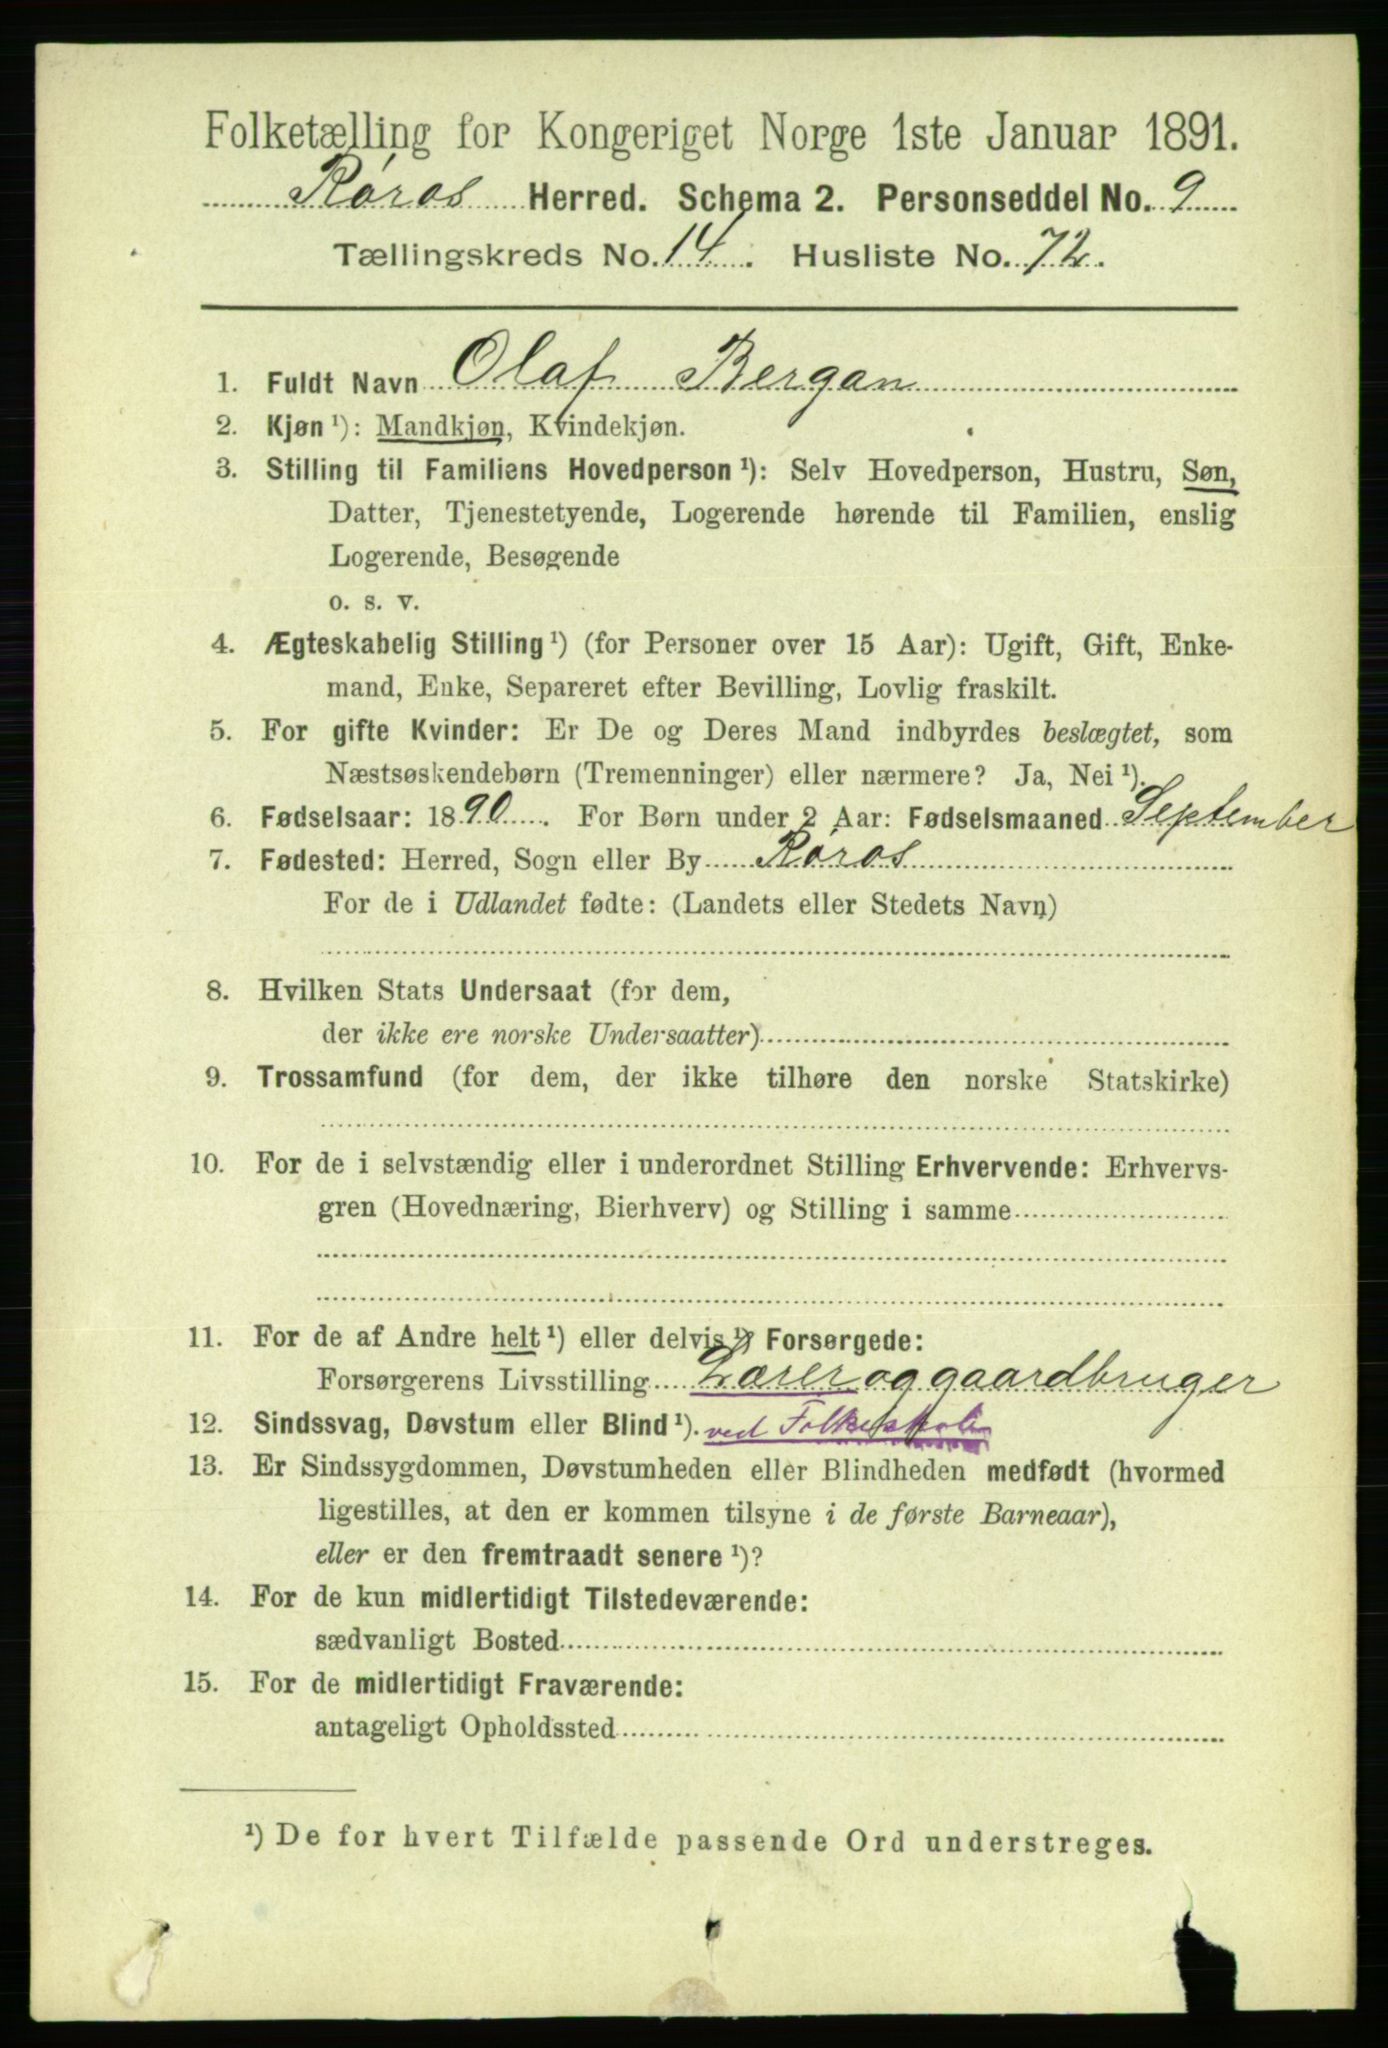 Folketælling for Kongeriget Norge 1ste Januar 1891.
Røros Herred. Schema 2. Personseddel No. 9
Tællingskreds No. 14. Husliste No. 72.
1. Fuldt Navn Olaf Bergan
2. Kjøn ¹): Mandkjøn, Kvindekjøn.
3. Stilling til Familiens Hovedperson ¹): Selv Hovedperson, Hustru, Søn,
Datter, Tjenestetyende, Logerende hørende til Familien, enslig
Logerende, Besøgende
o. s. v.
4. Ægteskabelig Stilling ¹) (for Personer over 15 Aar): Ugift, Gift, Enke-
mand, Enke, Separeret efter Bevilling, Lovlig fraskilt.
5. For gifte Kvinder: Er De og Deres Mand indbyrdes beslægtet, som
Næstsøskendebørn (Tremenninger) eller nærmere? Ja, Nei ¹).
6. Fødselsaar: 1890. For Børn under 2 Aar: Fødselsmaaned September
7. Fødested: Herred, Sogn eller By Røros
For de i Udlandet fødte: (Landets eller Stedets Navn)
8. Hvilken Stats Undersaat (for dem,
der ikke ere norske Undersaatter)
9. Trossamfund (for dem, der ikke tilhøre den norske Statskirke)
10. For de i selvstændig eller i underordnet Stilling Erhvervende: Erhvervs-
gren (Hovednæring, Bierhverv) og Stilling i samme
11. For de af Andre helt ¹) eller delvis ¹) Forsørgede:
Forsørgerens Livsstilling Lærer og gaardbruger
12. Sindssvag, Døvstum eller Blind ¹). ved Folkeskole
13. Er Sindssygdommen, Døvstumheden eller Blindheden medfødt (hvormed
ligestilles, at den er kommen tilsyne i de første Barneaar),
eller er den fremtraadt senere ¹)?
14. For de kun midlertidigt Tilstedeværende:
sædvanligt Bosted
15. For de midlertidigt Fraværende:
antageligt Opholdssted
¹) De for hvert Tilfælde passende Ord understreges.